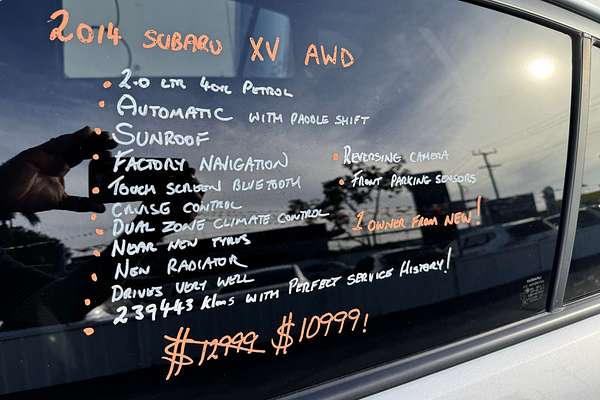 2014 SUBARU XV AWD
• 2.0 LTR 4CYL PETROL
• AUTOMATIC WITH PADDLE SHIFT
• SUNROOF
• FACTORY NAVIGATION
• TOUCH SCREEN BLUETOOTH
• CRUISE CONTROL
• DUAL ZONE CLIMATE CONTROL
• NEAR NEW TYRES
• NEW RADIATOR
• DRIVES VERY WELL
• 239443 KLMS WITH PERFECT SERVICE HISTORY!
• REVERSING CAMERA
• FRONT PARKING SENSORS
1 OWNER FROM NEW!
$12999 $10999!